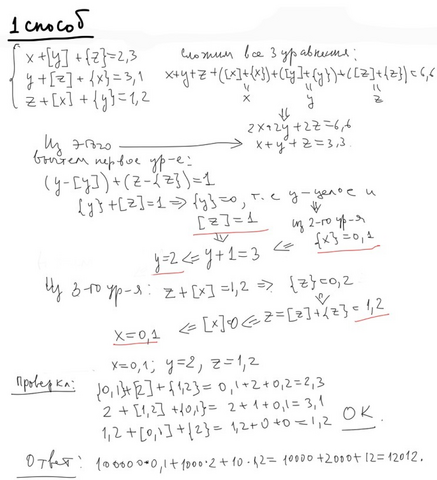 1 способ
{ x+[y]+{z}=2,3
y+[z]+{x}=3,1
z+[x]+{y}=1,2
сложим все 3 уравнения:
x+y+z+([x]+{x})+([y]+{y})+([z]+{z})=6,6
x y z
2x+2y+2z=6,6
Из этого → x+y+z=3,3.
вычтем первое ур-е:
(y-[y])+(z-{z})=1
{y}+[z]=1 ⇒ {y}=0, т.е y-целое и
[z]=1 из 2-го ур-я
y=2 ⇐ y+1=3 ⇐ {x}=0,1
Из 3-го ур-я: z+[x]=1,2 ⇒ {z}=0,2
x=0,1 ⇐ [x]=0 ⇐ z=[z]+{z}=1,2
x=0,1; y=2, z=1,2
Проверка: {0,1}+[2]+{1,2}=0,1+2+0,2=2,3
2+[1,2]+{0,1}=2+1+0,1=3,1
1,2+[0,1]+{2}=1,2+0+0=1,2 OK.
Ответ: 100000•0,1+1000•2+10•1,2=10000+2000+12=12012.